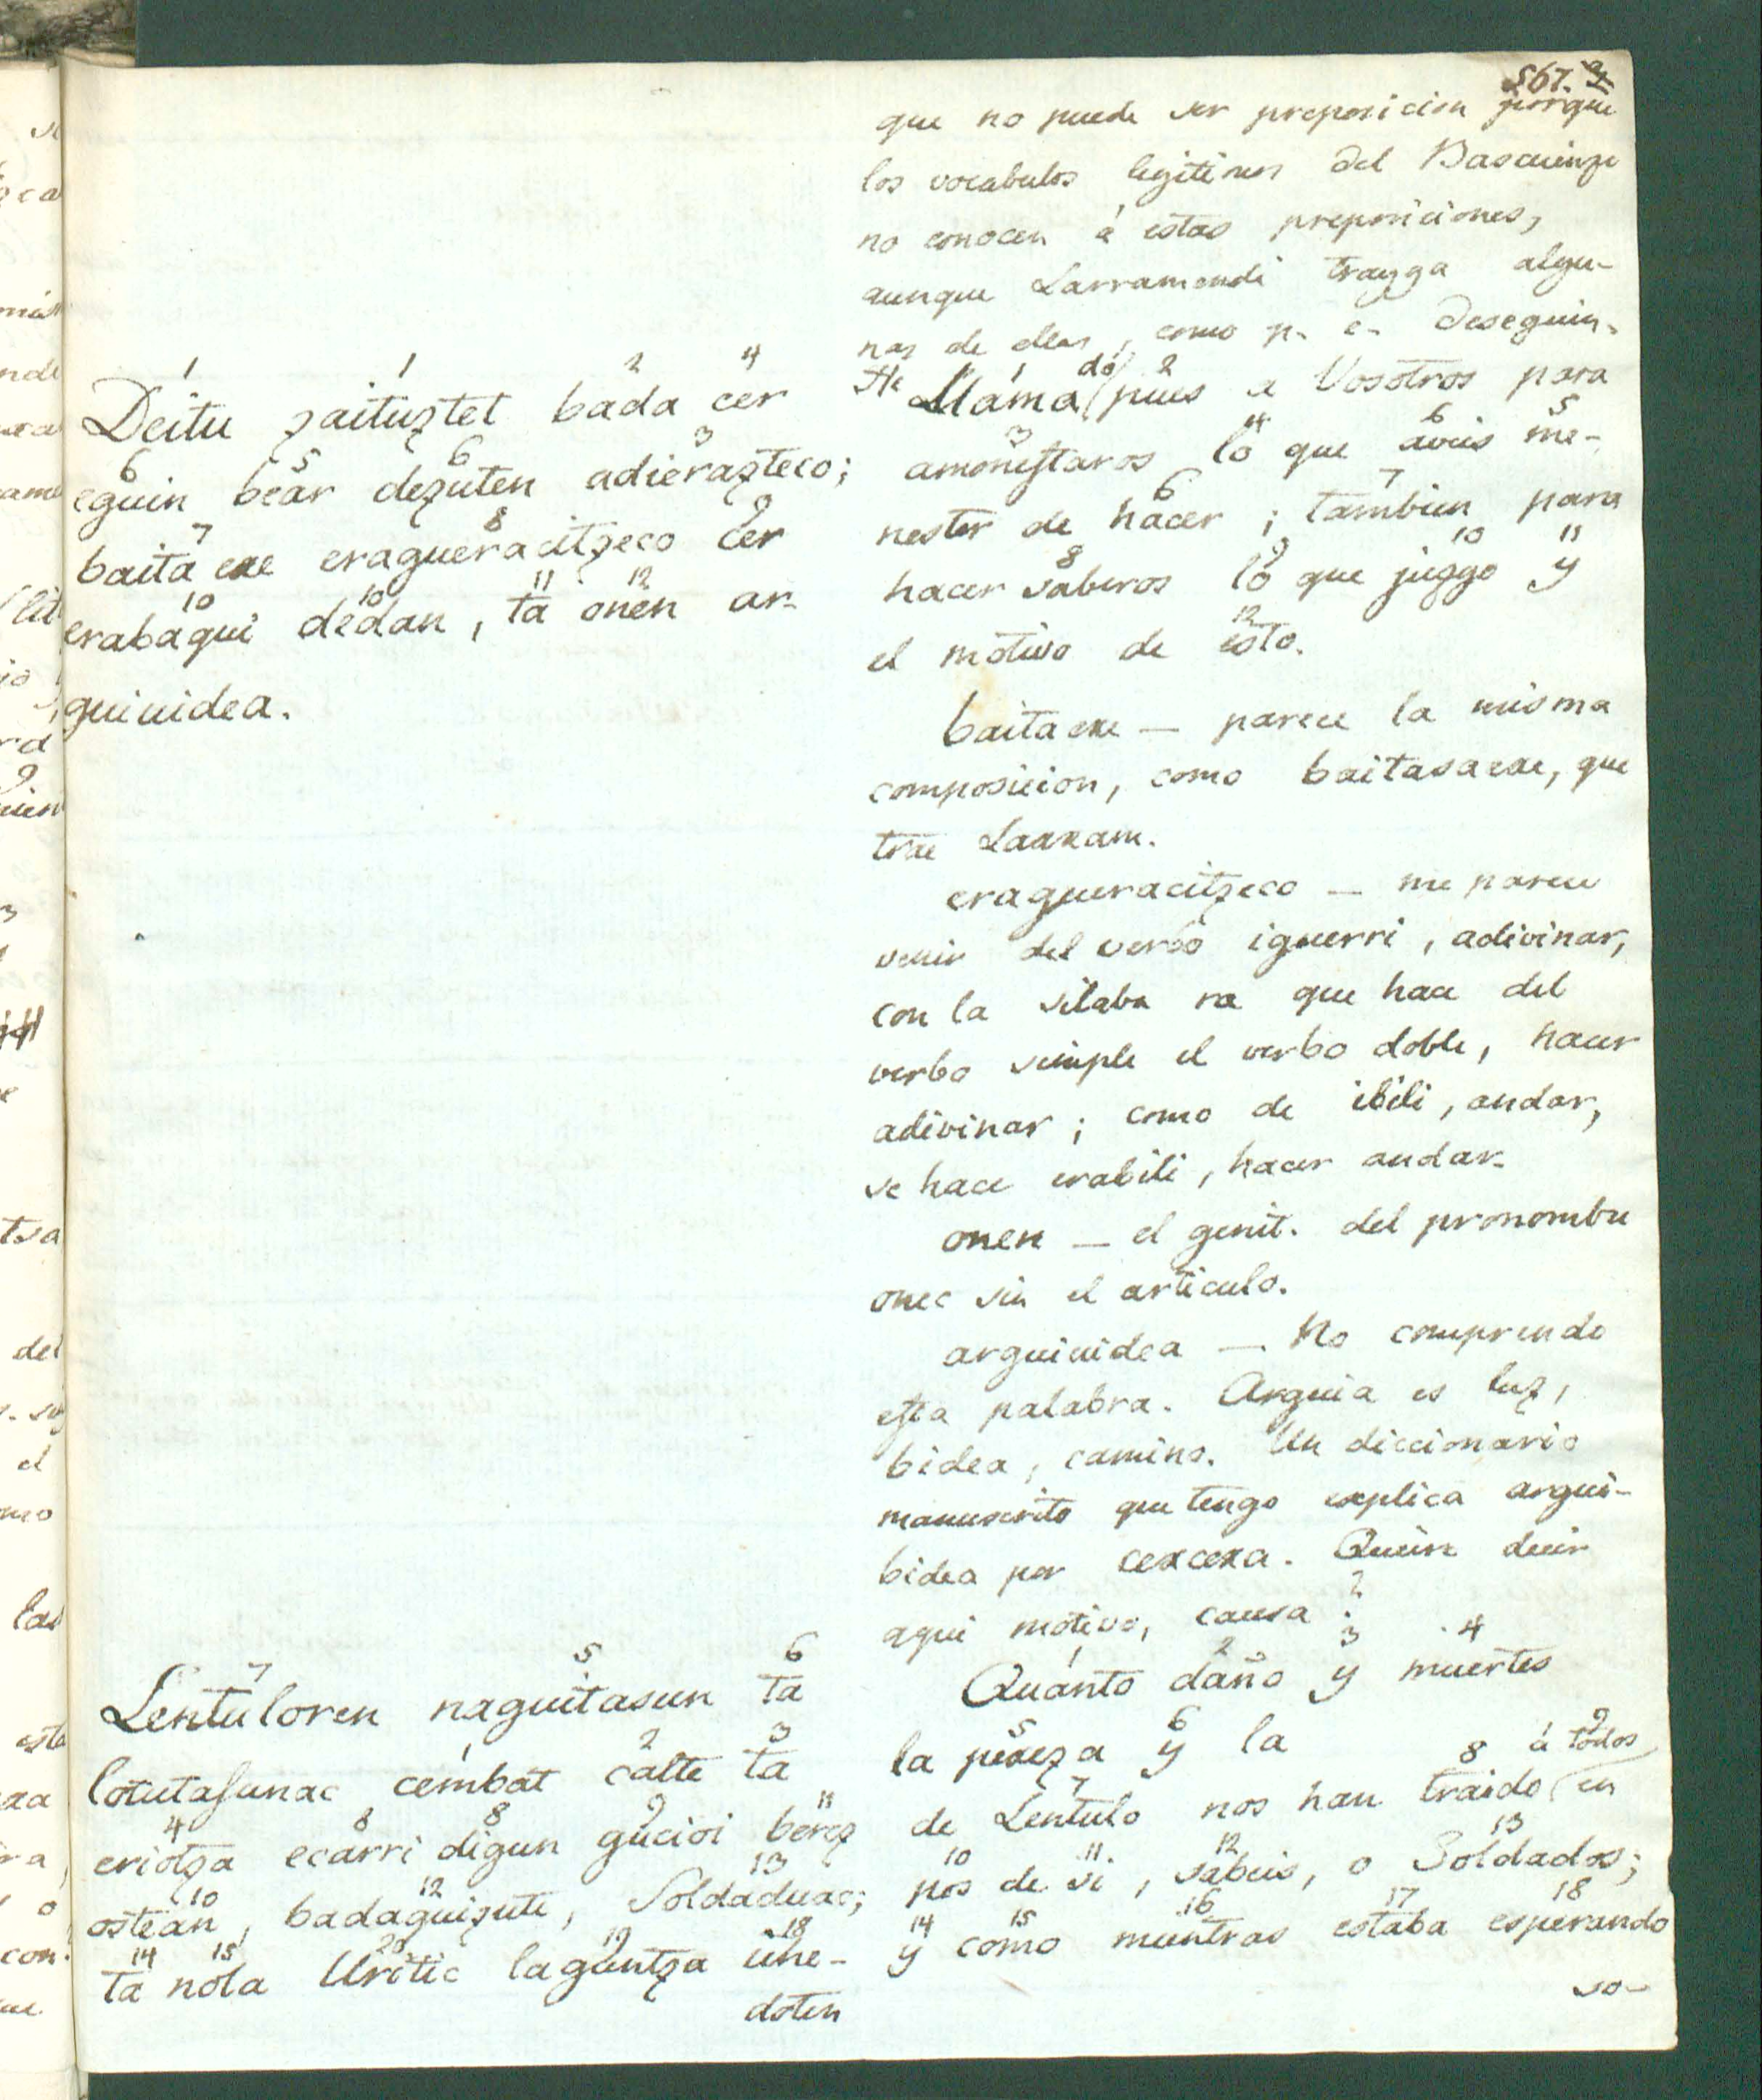 567.
que no puede ser preposicion porque
los vocabulos legitimos del Bascuenze
no conocen á estas preposiciones,
aunque Larramendi trayga algu-
nas de ellas, como p. e. deseguin.
1 1 2 4
Deitu zaituztet bada cer
6 5 6 3
eguin bear dezuten adierazteco;
7 8 9
baita ere eragueracitzeco cer
10 10 11 12
erabaqui dedan, ta onen ar-
guiuidea.
1 do 2
He Llama(pues a Vosotros para
3 4 6 5
amonestaros lo que aveis me-
6 7
nester de hacer; tambien para
8 9 10 11
hacer saberos lo que juzgo y
12
el motivo de esto.
baitaere — parece la misma
composicion, como baitasaere, que
trae Larram.
eragueracitzeco — me parece
venir del verbo iguerri, adivinar,
con la silaba ra que hace del
verbo simple el verbo doble, hacer
adivinar; como de ibili, andar,
se hace erabili, hacer andar.
onen — el genit. del pronombre
onec sin el articulo.
arguiuidea — No comprendo
esta palabra. Arguia es luz,
bidea, camino. Un diccionario
manuscrito que tengo explica argui-
bidea por cercera. Quiere decir
aqui motivo, causa?
7 5 6
Lentuloren naguitasun ta
1 2 3
lotutasunac cembat calte ta
4 8 8 9 11
eriotza ecarri digun gucioi berez
10 12 13
ostean, badaquizute, Soldaduac;
14 15 20 19 18
ta nola Uritic laguntza üne-
doten
1 2 3 4
Quanto daño y muertes
5 6
la pereza y la
7 8 á todos 9
de Lentulo nos han traido (en
10 11 12 13
pos de si, sabeis, o Soldados;
14 15 16 17 18
y como mientras estaba esperando
so-